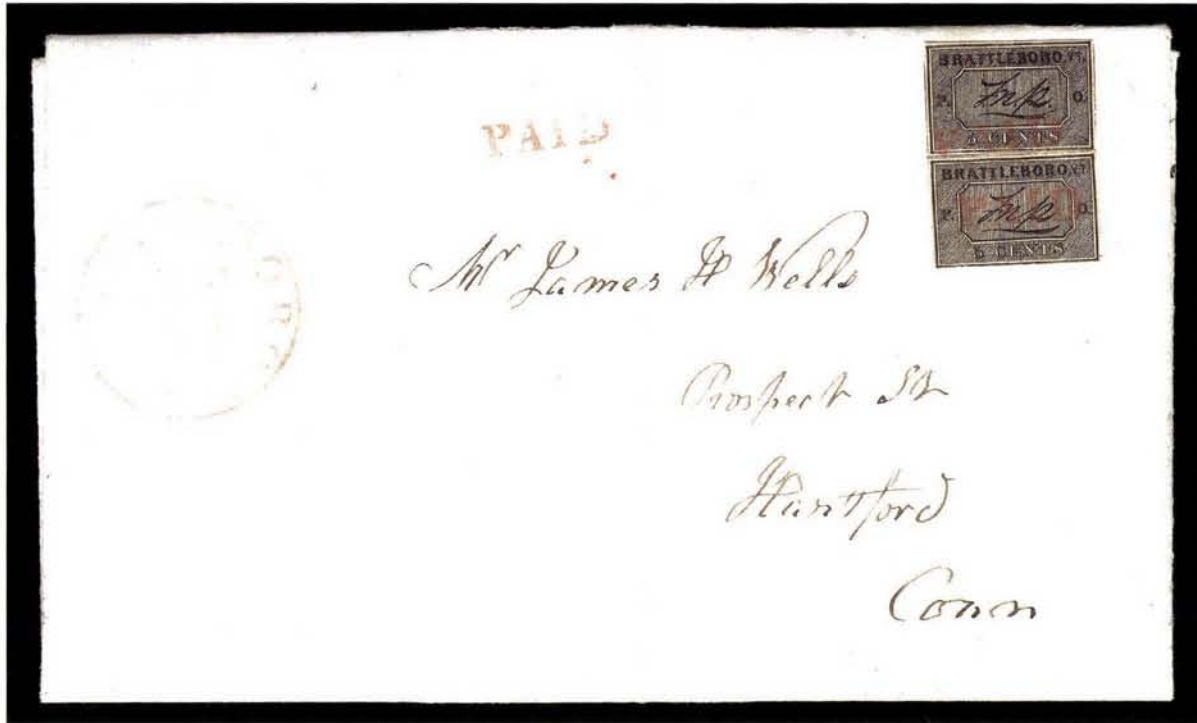 PAID
BRATTLEBORO, VT.
P. FNP. O.
5 CENTS
BRATTLEBORO, VT.
P. FNP O.
PAID
5 CENTS
Mr James H Wells
Prospect St
Hartford
Conn